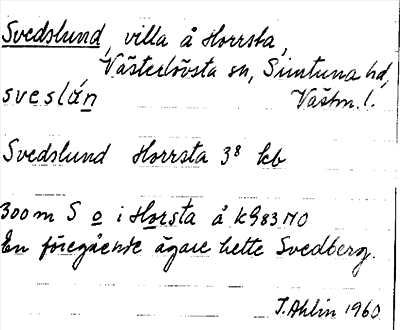 Svedslund, villa å Horrsta,
Västerlövsta sn, Simtuna hd,
sveslún Västm. l.
Svedslund Horrsta 3⁸ kb
300 m S o i Horsta å k 983 NO
En föregående ägare hette Svedberg.
J. Ahlin 1960